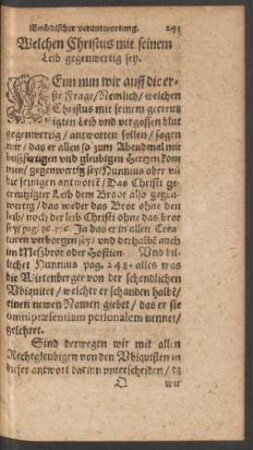 Embdischer verantwortung. 241
Welchen Christus mit seinem
Leib gegenwertig sey.
WEnn nun wir auff die er-
ste Frage/Nemlich/welchen
Christus mit seinem gecreu-
tzigten Leib vnd vergossen blut
gegenwertig/antworten sollen/sagen
wir/das er allen so zum Abendmal mit
bußfertigen vnd gleubigen Hertzen kom
men/gegenwertig sey/Hunnius aber vñ
die seinigen antworte/Das Christi ge-
creutzigter Leib dem Broot also gegen-
wertig/das weder das Brot ohne den
leib/noch der leib Christi ohne das brot
sey/pag. Ja das er in allen Crea
turen verborgen sey/vnd derhalbe auch
im Meßbrot oder Hostien. Vnd bil-
lichet Hunnius pag. 248. alles was
die Wirtenberger von der schendlichen
Vbiquitet/welcher er schanden halbē/
einen newen Namen giebet/das er sie
omnipræsentiam personalem nennet/
gelehret.
Sind derwegen wir mit allen
Rechtgleubigen von den Vbiquisten in
dieser antwort darinn vnterscheiden/dz
O wir